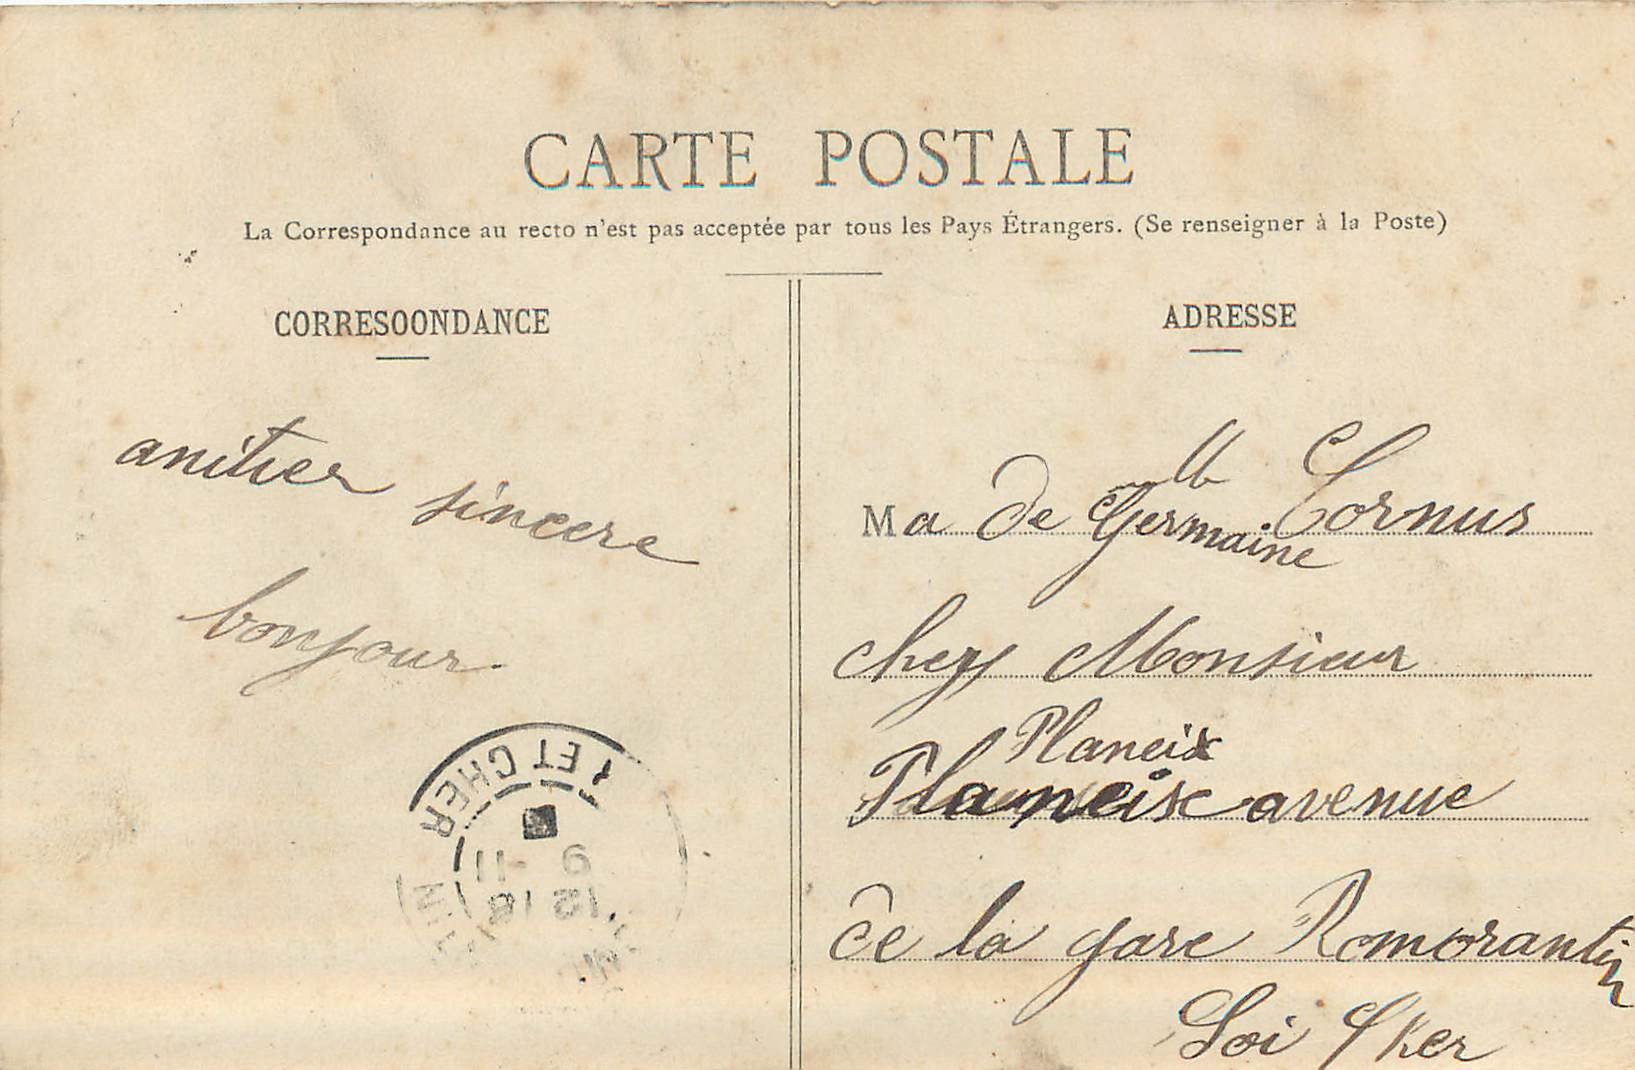 CARTE POSTALE
La Correspondance au recto n'est pas acceptée par tous les Pays Étrangers. (Se renseigner à la Poste)
CORRESOONDANCE
anitier sincere
bonjour
ET CHER
9 -11
12
ADRESSE
Ma de Germaine Cornus
chez Monsieur
Planeix
Planeix avenue
de la gare Romorantin
Loi Cher